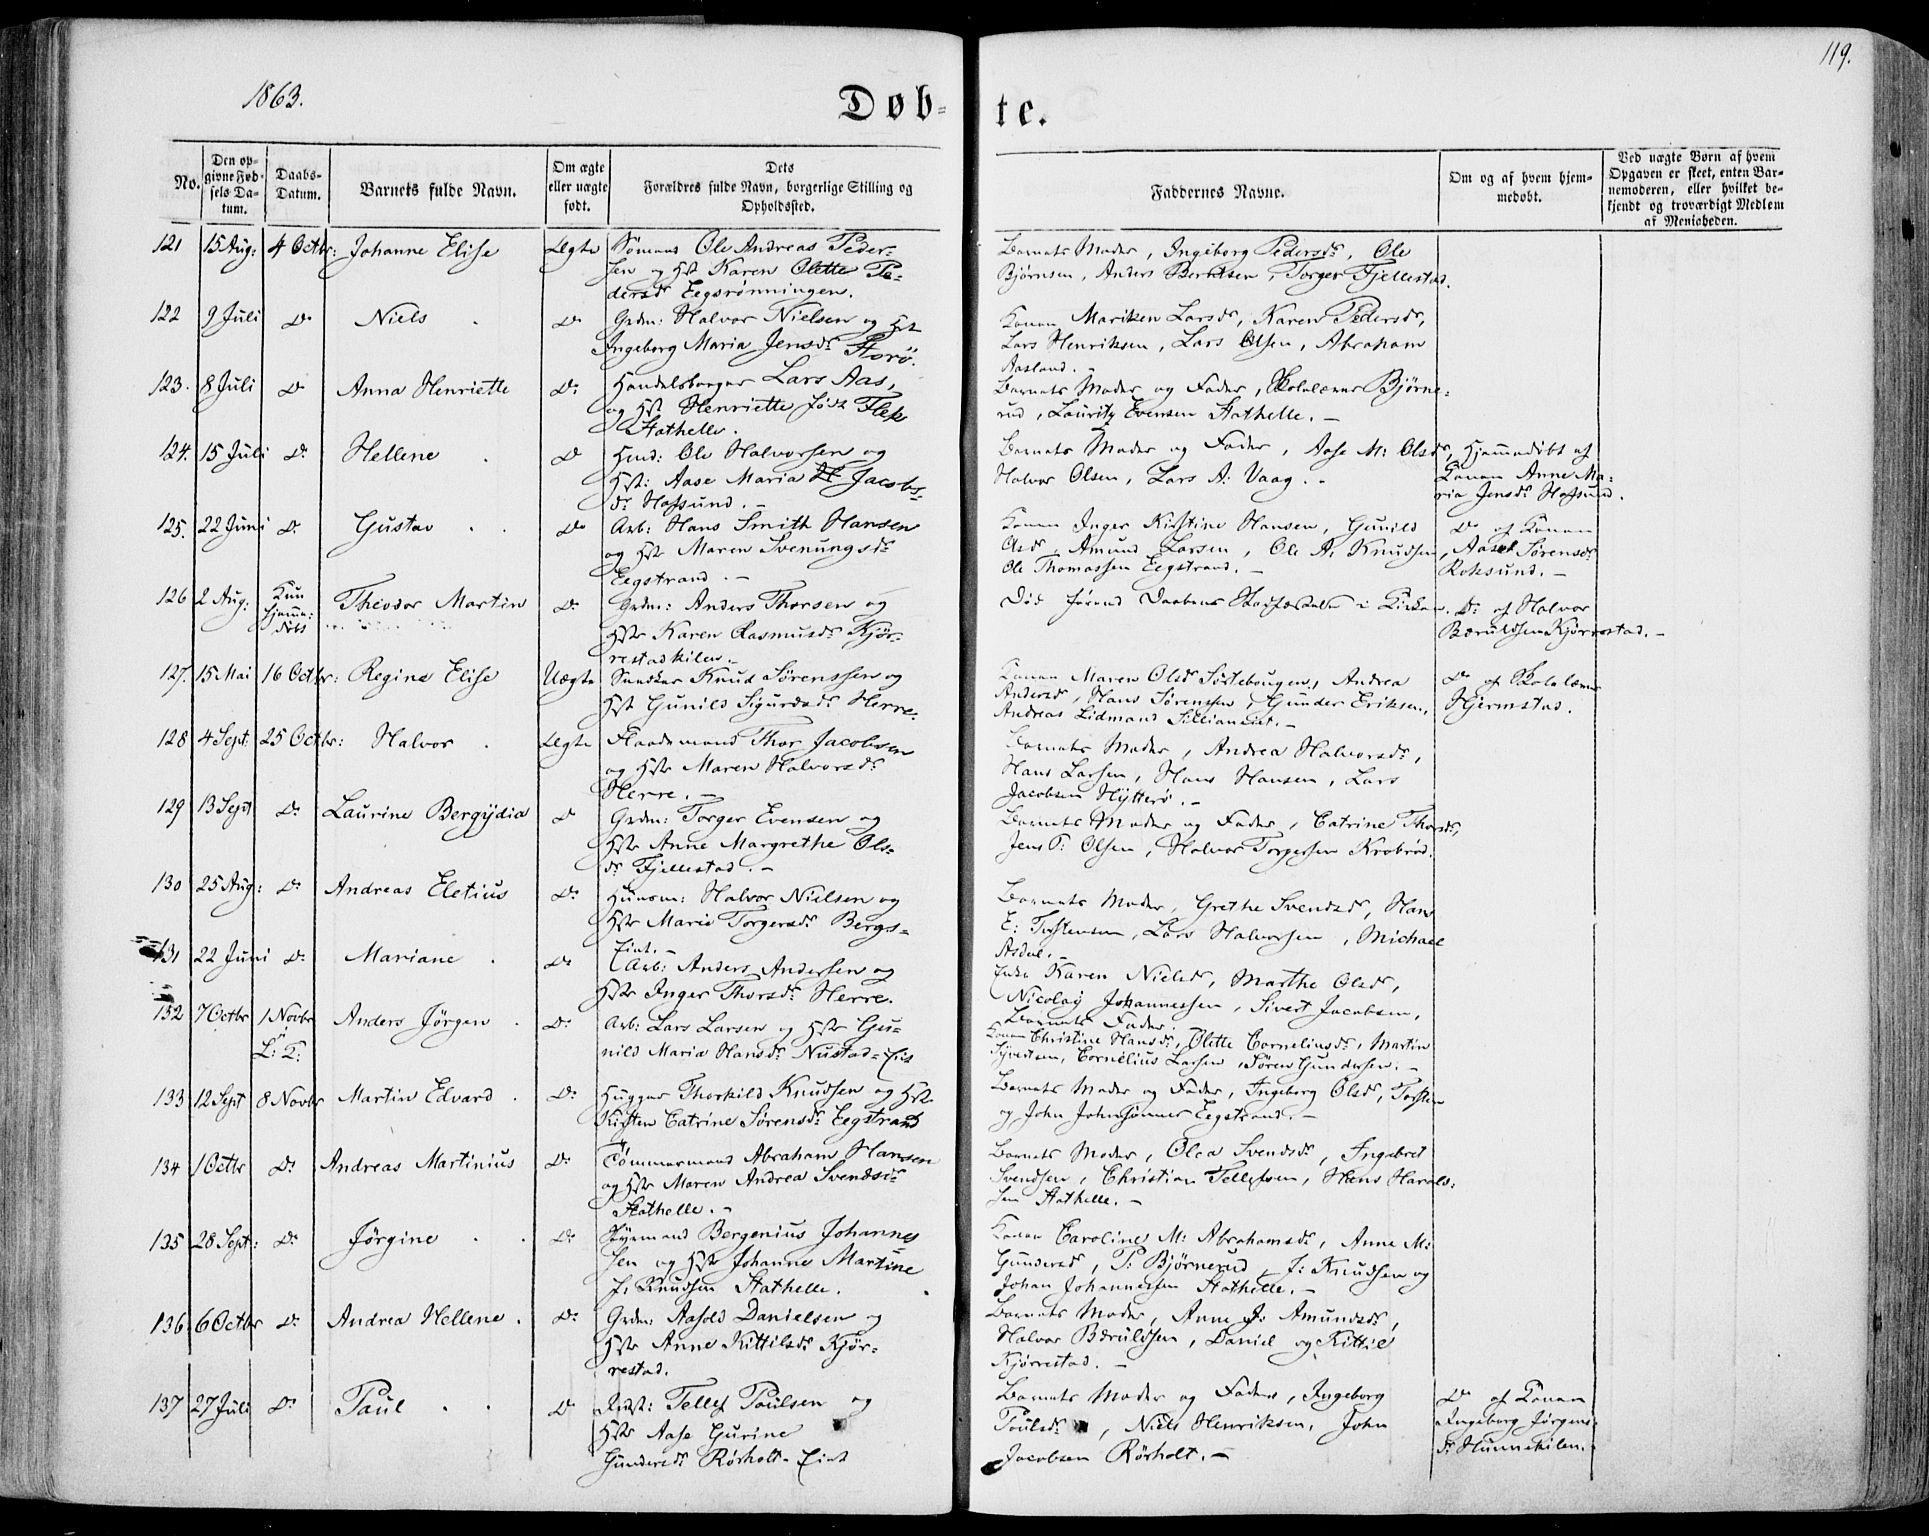 119.
1863.
Døb- te.
No.
Den op-
givne Fød-
sels Da-
tum.
Daabs-
Datum.
Barnets fulde Navn.
Om ægte
eller uægte
født.
Dets
Forældres fulde Navn, borgerlige Stilling og
Opholdssted.
Faddernes Navne.
Om og af hvem hjem-
medøbt.
Ved uægte Børn af hvem
Opgaven er skeet, enten Bar-
nemoderen, eller hvilket be-
kjendt og troværdigt Medlem
af Menigheden.
121 15 Aug: 4 Octbr: Johanne Elise Ægte Sømand Ole Andreas Peder-
sen og Hst Karen Olette Pe-
dersdr Eegsrønningen.
Barnets Moder, Ingeborg Pedersdr, Ole
Bjørnsen, Anders Berntsen, Torger Fjellestad.
122 9 Juli Do Niels Do Grdm: Halvor Nielsen og Hst
Ingeborg Maria Jensdr Storö.
Konen Mariken Larsdr, Karen Pedersdr,
Lars Henriksen, Lars Olsen, Abraham
Aasland. -
123. 8 Juli Do Anna Henriette Do Handelsborger Lars Aas,
og Hst Henriette født Flek
Stathelle.
Barnets Moder og Fader, Skolelærer Bjørne-
rud, Lauritz Evensen Stathelle. -
124. 15 Juli Do Hellene Do Hmd: Ole Halvorsen og
Hst: Aase Maria Jacobs-
dr Hafsund. -
Barnets Moder og Fader, Aase M: Olsdr,
Halvor Olsen, Lars A: Vaag. -
Hjemmedöbt af
Konen Anne Ma-
ria Jensdr Hafsund.
125. 22 Juni Do Gustav Do Arb: Hans Smith Hansen
og Hst Maren Svenungsdr
Eegstrand. -
Konen Inger Kirstine Hansen, Gunild
Olsdr, Amund Larsen, Ole A. Knudsen,
Ole Thomassen Eegstrand. -
Do af Konen
Aaset Sörensdr
Roksund. -
126 2 Aug: Kun
hjemme-
döbt Theodor Martin Do Grdm: Anders Thorsen og
Hst Karen Rasmusdr Kjør-
restadkilen.
Död förend Daabens Stadfæstelse i Kirken.
Do af Halvor
Bæruldsen Kjørrestad. -
127. 15 Mai 16 Octbr: Regine Elise Uægte Knud Sörenssen og
Hst Gunild Sigurdsdr Herre.
Konen Maren Olsdr, Andrea
Andersdr, Hans Sörenssen, Gunder Eriksen,
Andreas Lidmand
Do af Skolelærer
Hjermstad.
128 4 Sept: 25 Octbr: Halvor Ægte Flaademand Thor Jacobsen
og Hst Maren Halvorsdr
Herre. -
Barnets Moder, Andrea Halvorsdr,
Hans Larsen, Hans Hansen, Lars
Jacobsen Hytterø. -
129 13 Sept Do Laurine Bergydia Do Grdm: Torger Evensen og
Hst Anne Margrethe Ols-
dr Fjellestad. -
Barnets Moder og Fader, Catrine Thorsdr,
Jens P: Olsen, Halvor Torgersen Krobröd.
130 25 Aug: Do Andreas Eletius Do Huusm: Halvor Nielsen og
Hst Marie Torgersdr Bergs-
Eiet. -
Barnets Moder, Grethe Svendsdr, Hans
E: Torstensen, Lars Halvorsen, Michael
Asdal. -
131 22 Juni Do Mariane Do Arb: Anders Andersen og
Hst Inger Thorsdr Herre.
Enke Karen Nielsdr, Marthe Olsdr,
Nicolay Johannessen, Sivert Jacobsen,
Barnets Fader.
132 7 Octbr 1 Novbr
L: T: Anders Jörgen Do Arb: Lars Larsen og Hst Gu-
nild Maria Hansdr Nustad-Eiet
Konen Christine Hansdr, Olette Corneliusdr, Martin
Syvertsen, Cornelius Larsen, Sören Gundersen. -
133 12 Sept 8 Novbr Martin Edvard Do Hugger Thorkild Knudsen og Hst
Kirsten Catrine Sörensdr Eegstrand
Barnets Moder og Fader, Ingeborg Olsdr, Torsten
og John Johnsönner Eegstrand. -
134 1 Octbr Do Andreas Martinius Do Tömmermand Abraham Hansen
og Hst Maren Andrea Svendsdr
Stathelle. -
Barnets Moder, Olea Svendsdr, Ingebret
Svendsen, Christian Tellefsen, Hans Harals-
sen Stathelle. -
135 28 Sept: Do Jørgine Do Styrmand Bergenius Johannes
sen og Hst Johanne Martine
f: Knudsen Stathelle.
Konen Caroline M: Abrahamsdr, Anne M:
Gundersdr, P: Bjørnerud, J: Knudsen og
Johan Johannessen Stathelle. -
136. 6 Octbr Do Andrea Hellene Do Grdm: Aasold Danielsen og
Hst Anne Kittilsdr Kjør-
restad.
Barnets Moder, Anne J: Amundsdr,
Halvor Bærulsen, Daniel og Kittil
Kjørrestad. -
137 27 Juli Do Paul Do Tellef Poulsen og
Hst Aase Gurine
Gundersdr Rörholt-Eiet
Barnets Moder og Fader, Ingeborg
Poulsdr, Niels Henriksen, John
Jacobsen Rörholt. -
Do af Konen
Ingeborg Jörgens-
dr Hunnekilen.